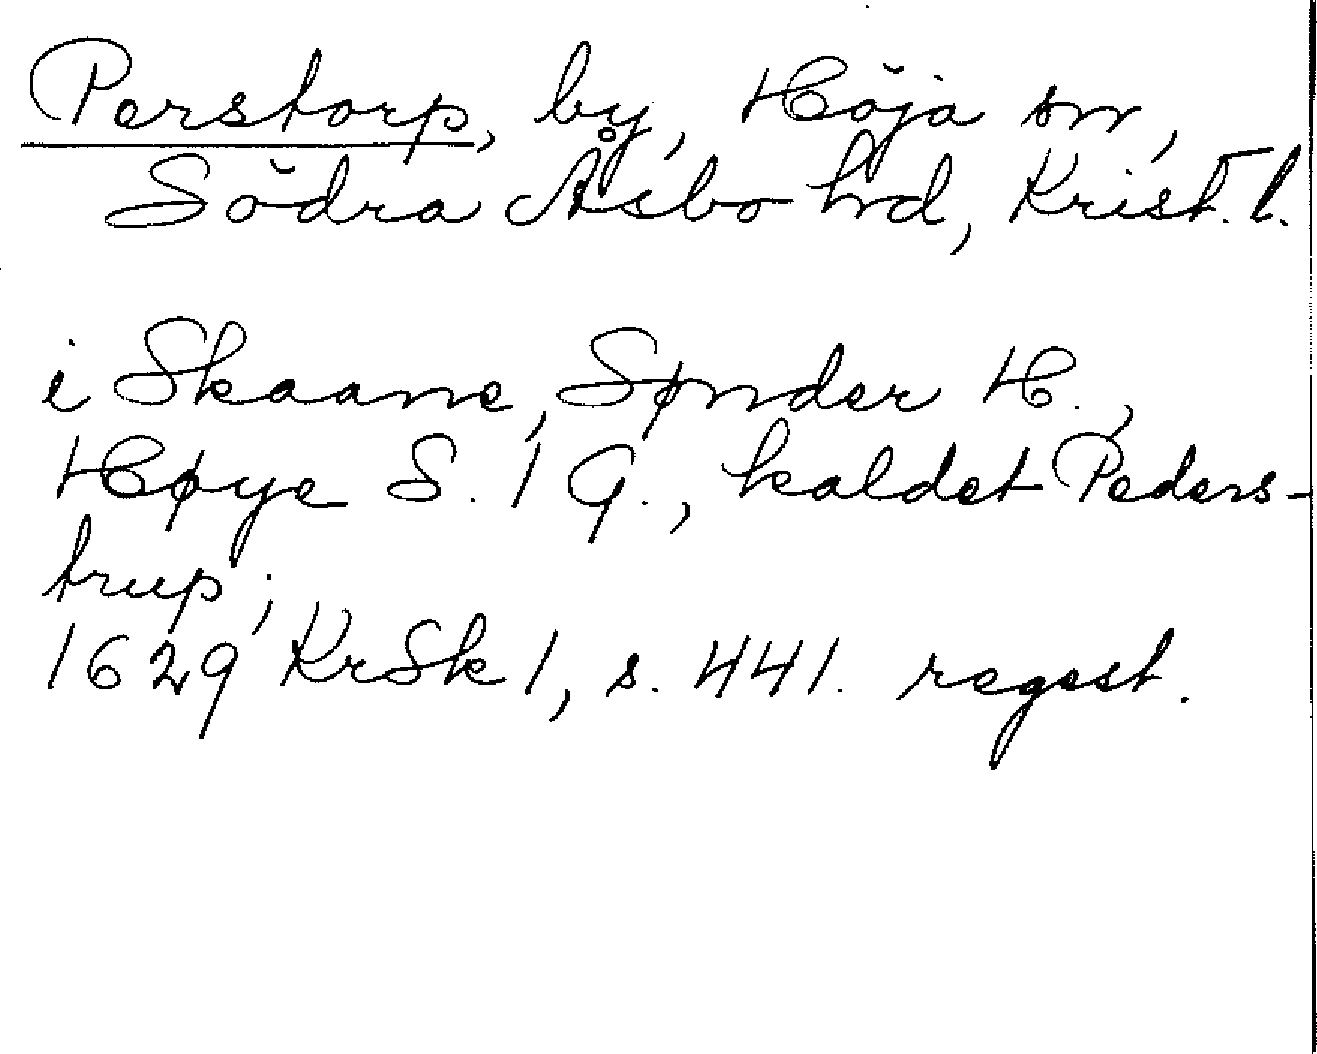 Perstorp, by, Höja sn,
Södra Åsbo hrd, Krist. l.
i Skaane, Sønder H.,
Høye S. 1 G., kaldet Peders-
trup;
1629 KrSk 1, s. 441. regest.